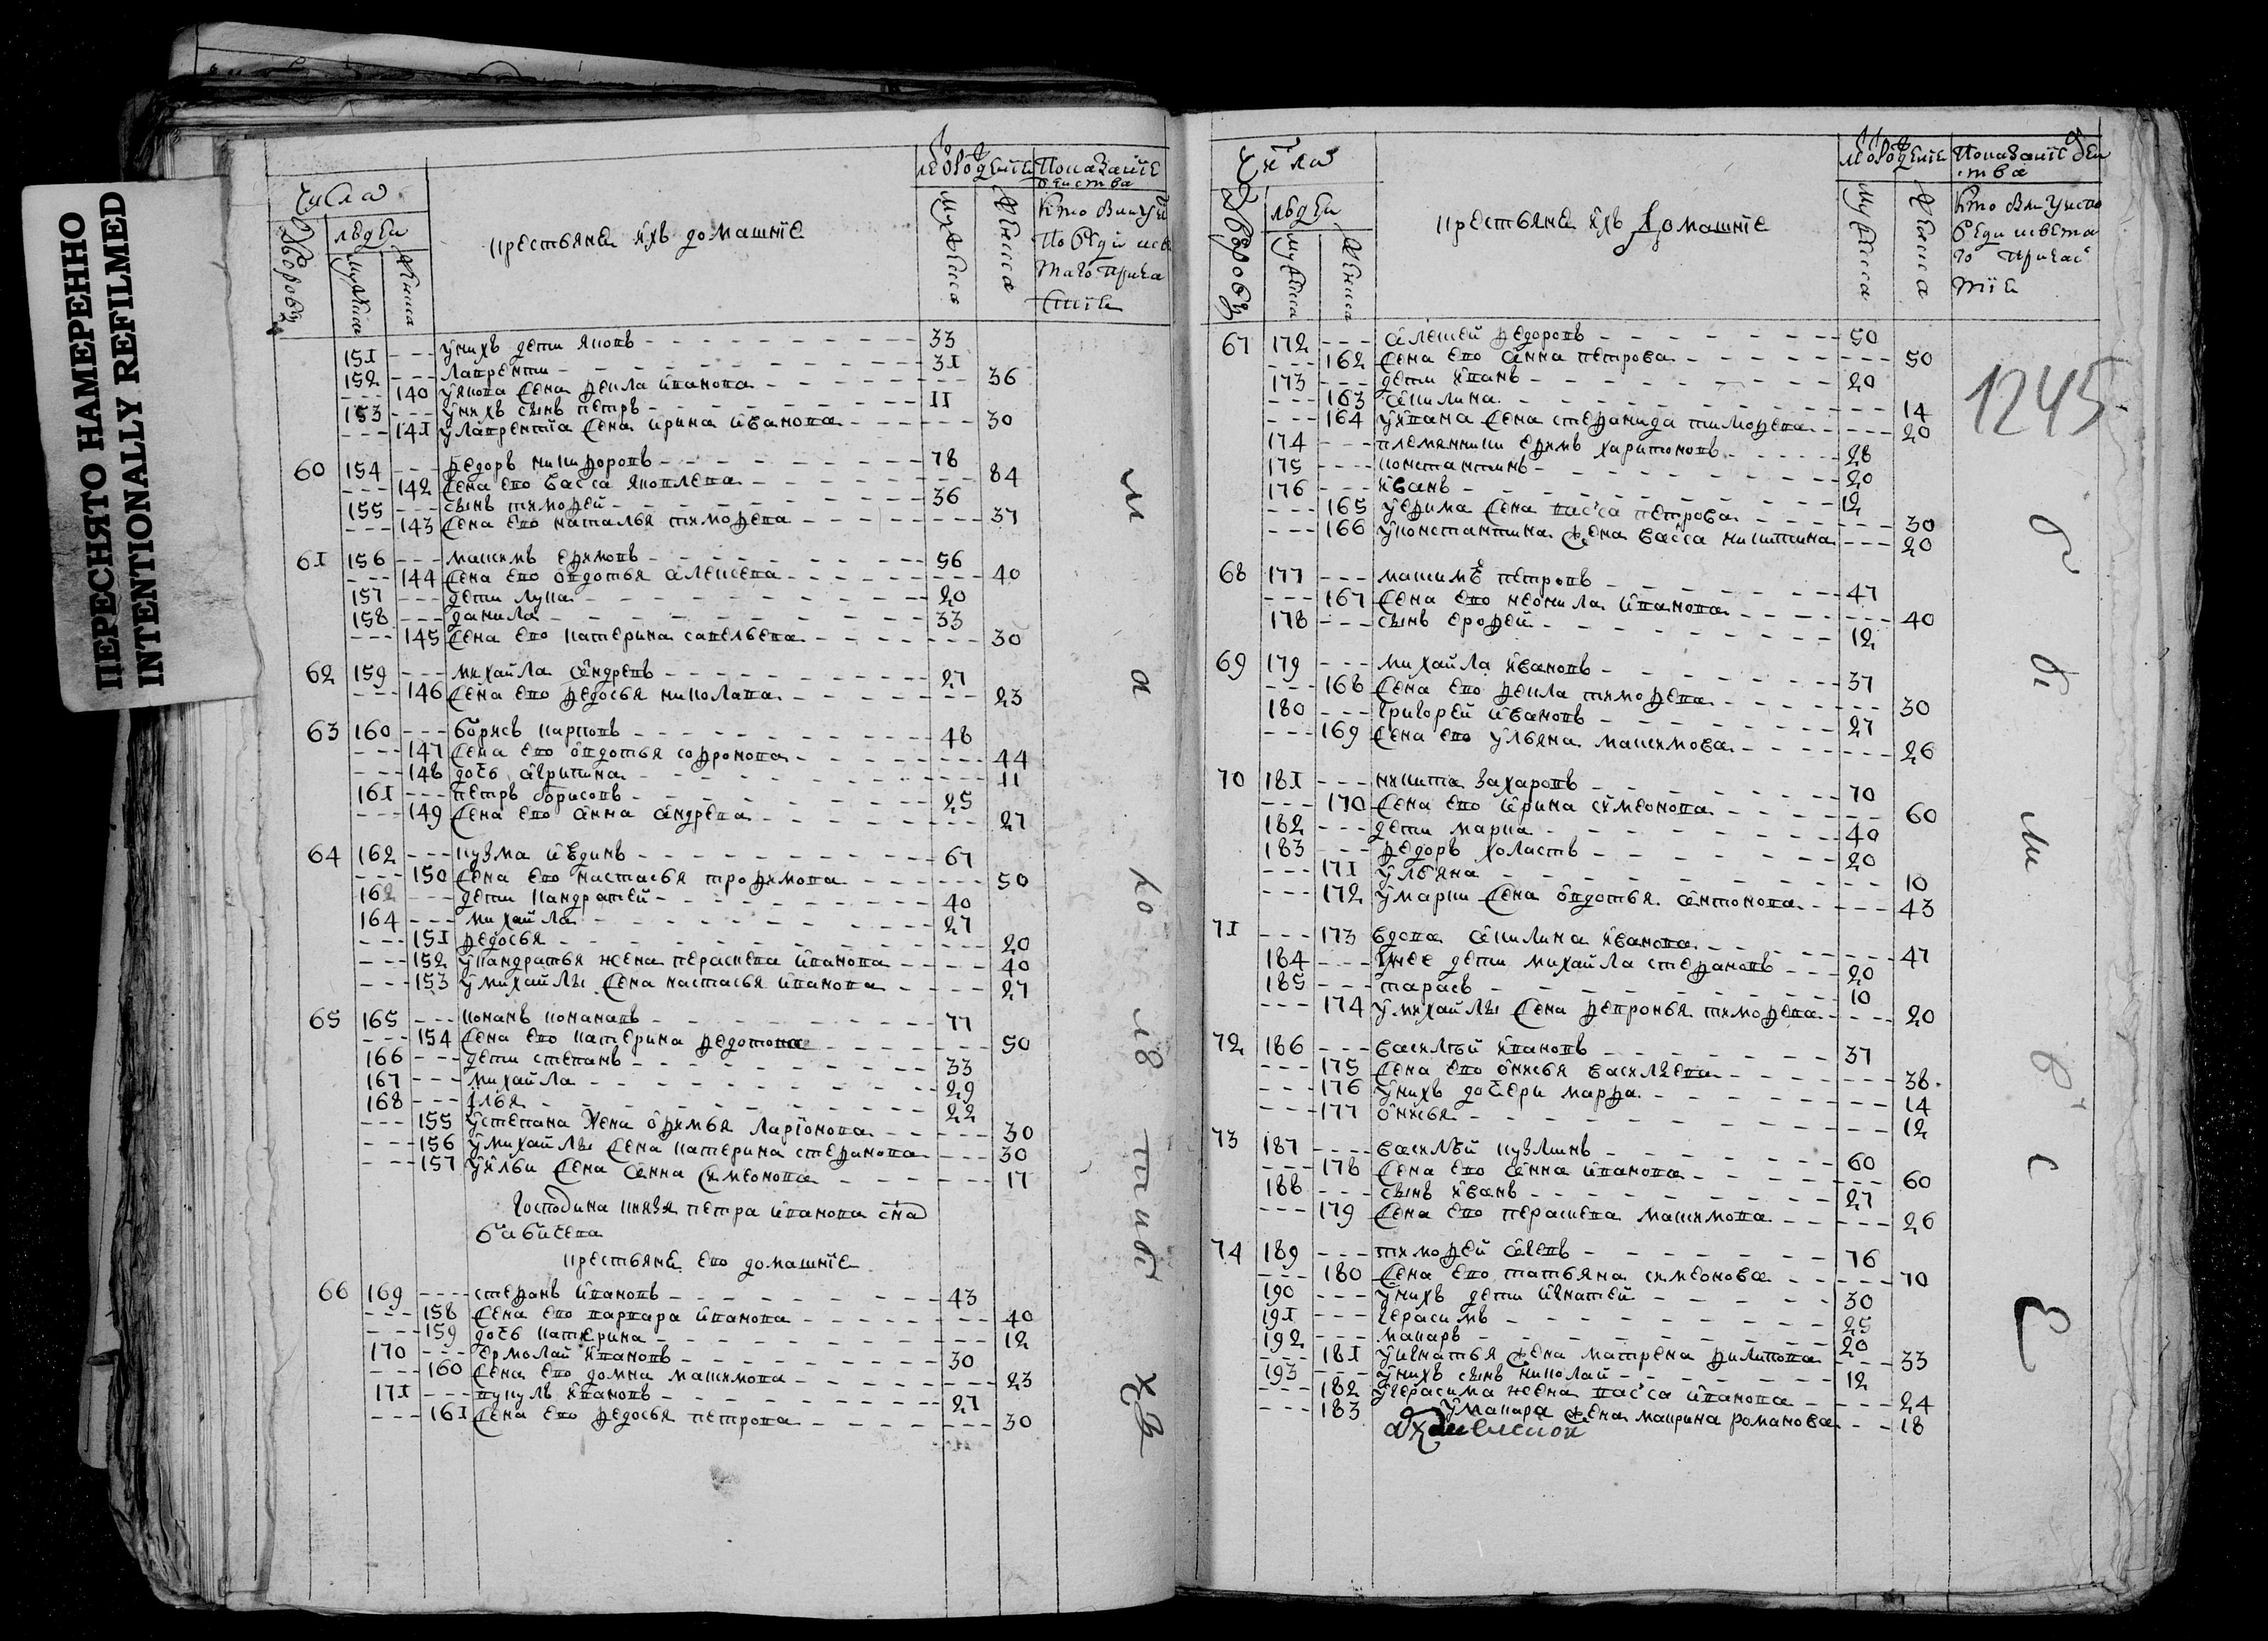 ПЕРЕСНЯТО НАМЕРЕННО
INTENTIONALLY REFILMED
числа
крестьяне ихъ домашнїе
Показанїе
людеи
дворовъ
мужеска
151 --- у нихъ дети яковъ --- 33
152 --- лаврентеи --- 31
--- 140 у якова жена фекла иванова --- 36
153 --- у нихъ сынъ петръ --- 11
--- 141 у лаврентїа жена ирина иванова --- 30
60 154 --- федоръ никифоровъ --- 78
--- 142 жена ево васса яковлева --- 84
155 --- сынъ тимофей --- 36
--- 143 жена ево наталья тимофева --- 37
61 156 --- максимъ ефимовъ --- 56
--- 144 жена ево овдотья алексева --- 40
157 --- дети лука --- 20
158 --- данила --- 33
--- 145 жена ево катерина савельева --- 30
62 159 --- михайла андревъ --- 27
--- 146 жена ево федосья николава --- 23
63 160 --- борисъ карповъ --- 48
--- 147 жена ево овдотья софронова --- 44
--- 148 дочь агрипина --- 11
161 --- петръ борисовъ --- 25
--- 149 жена ево анна андрева --- 27
64 162 --- кузма --- 67
--- 150 жена ево настасья трофимова --- 50
162 --- дети кандратей --- 40
164 --- михайла --- 27
--- 151 федосья --- 20
--- 152 у кандратья жена пераскева иванова --- 40
--- 153 у михайлы жена настасья иванова --- 27
65 165 --- конанъ конановъ --- 77
--- 154 жена ево катерина федотова --- 50
166 --- дети степанъ --- 33
167 --- михайла --- 29
168 --- илья --- 22
--- 155 у степана жена офимья ларїонова --- 30
--- 156 у михайлы жена катерина стефанова --- 30
--- 157 у ильи жена анна симеонова --- 17
Господина князя петра иванова сна
бабичева
крестьяне ево домашнїе
66 169 --- стефанъ ивановъ --- 43
--- 158 жена ево варвара иванова --- 40
--- 159 дочь катерина --- 12
170 --- ермолай ивановъ --- 30
--- 160 жена ево домна максимова --- 23
171 --- ивановъ --- 27
--- 161 жена ево федосья петрова --- 30
числа
крестьяне ихъ домашнїе
людеи
дворовъ
мужеска
женска
1245
67 172 --- алексей федоровъ --- 50
--- 162 жена ево анна петрова --- 50
173 --- дети иванъ --- 20
--- 163 акилина --- 14
--- 164 у ивана жена стефанида тимофева --- 20
174 --- племянники ефимъ харитоновъ --- 28
175 --- константинъ --- 20
176 --- иванъ --- 12
--- 165 у ефима жена васса петрова --- 30
--- 166 у константина жена васса никитина --- 20
68 177 --- максимъ петровъ --- 47
--- 167 жена ево неонила иванова --- 40
178 --- сынъ ерофей --- 12
69 179 --- михайла ивановъ --- 37
--- 168 жена ево фекла тимофева --- 30
180 --- григорей ивановъ --- 27
--- 169 жена ево ульяна максимова --- 26
70 181 --- никита захаровъ --- 70
--- 170 жена ево ирина симеонова --- 60
182 --- дети марка --- 40
183 --- федоръ холастъ --- 20
--- 171 ульяна --- 10
--- 172 у марки жена овдотья антонова --- 43
71 --- 173 вдова акилина иванова --- 47
184 --- у нее дети михайла стефановъ --- 20
185 --- тарасъ --- 10
--- 174 у михайлы жена февронья тимофева --- 20
72 186 --- василей ивановъ --- 37
--- 175 жена ево онисья василева --- 38
--- 176 у нихъ дочери марфа --- 14
--- 177 онисья --- 12
73 187 --- василей кузминъ --- 60
--- 178 жена ево анна иванова --- 60
188 --- сынъ иванъ --- 27
--- 179 жена ево пераскева максимова --- 26
74 189 --- тимофей --- 76
--- 180 жена ево татьяна симеонова --- 70
190 --- у нихъ дети игнатей --- 30
191 --- герасимъ --- 25
192 --- макаръ --- 20
--- 181 у игнатья жена матрена филипова --- 33
193 --- у нихъ сынъ николай --- 12
--- 182 у герасима жена васса иванова --- 24
--- 183 у макара жена маврина романова --- 18